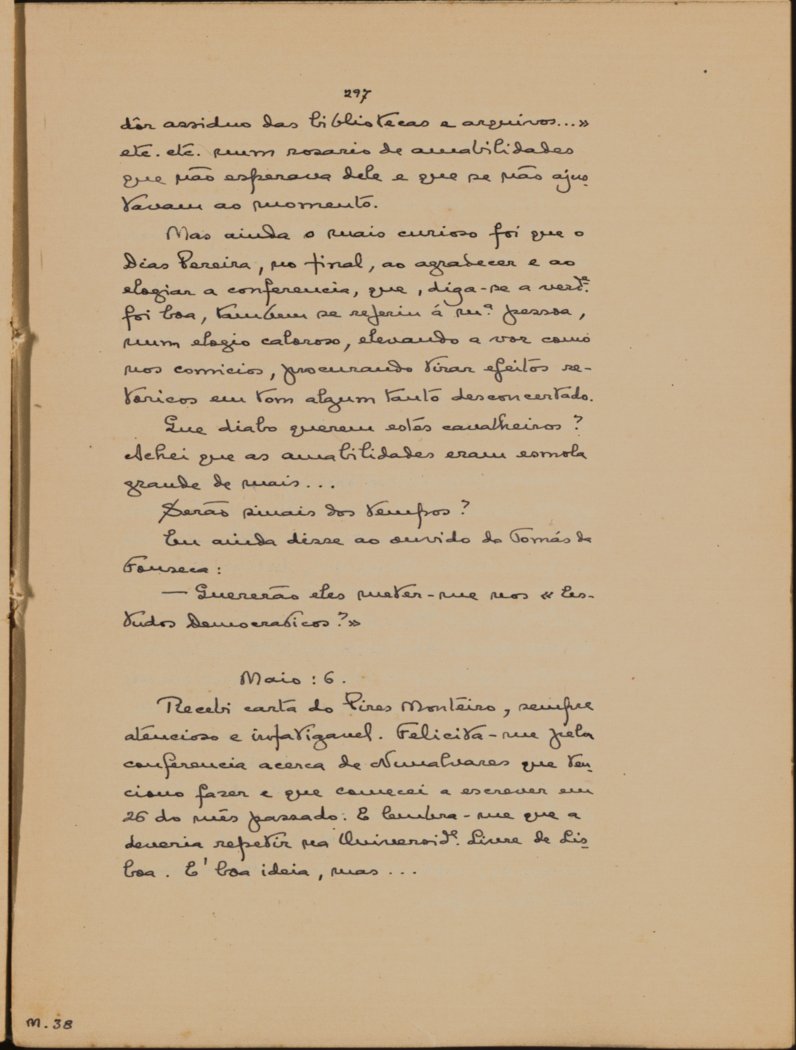 297
dôr assiduo das bibliotecas e arquivos...»
etc. etc. num rosario de amabilidades
que não esperava dele e que se não ajus-
tavam ao momento.
Mas ainda o mais curioso foi que o
Dias Pereira, no final, ao agradecer e ao
elogiar a conferencia, que, diga-se a verd.ᵉ
foi boa, tambem se referiu á m.ª pessoa,
num elogio caloroso, elevando a voz como
nos comicios, procurando tirar efeitos re-
toricos em tom algum tanto desconcertado.
Que diabo querem estes cavalheiros?
Achei que as amabilidades eram esmola
grande de mais...
Serão sinais dos tempos?
Eu ainda disse ao ouvido do Tomás da
Fonseca:
— Quererão eles meter-me nos «Es-
tudos Democraticos?»
Maio: 6.
Recebi carta do Pires Monteiro, sempre
atencioso e infatigavel. Felicita-me pela
conferencia acerca de Nunalvares que ten-
ciono fazer e que comecei a escrever em
26 do mês passado. E lembra-me que a
deveria repetir na Universid.ᵉ Livre de Lis-
boa. E' boa ideia, mas...
M. 38